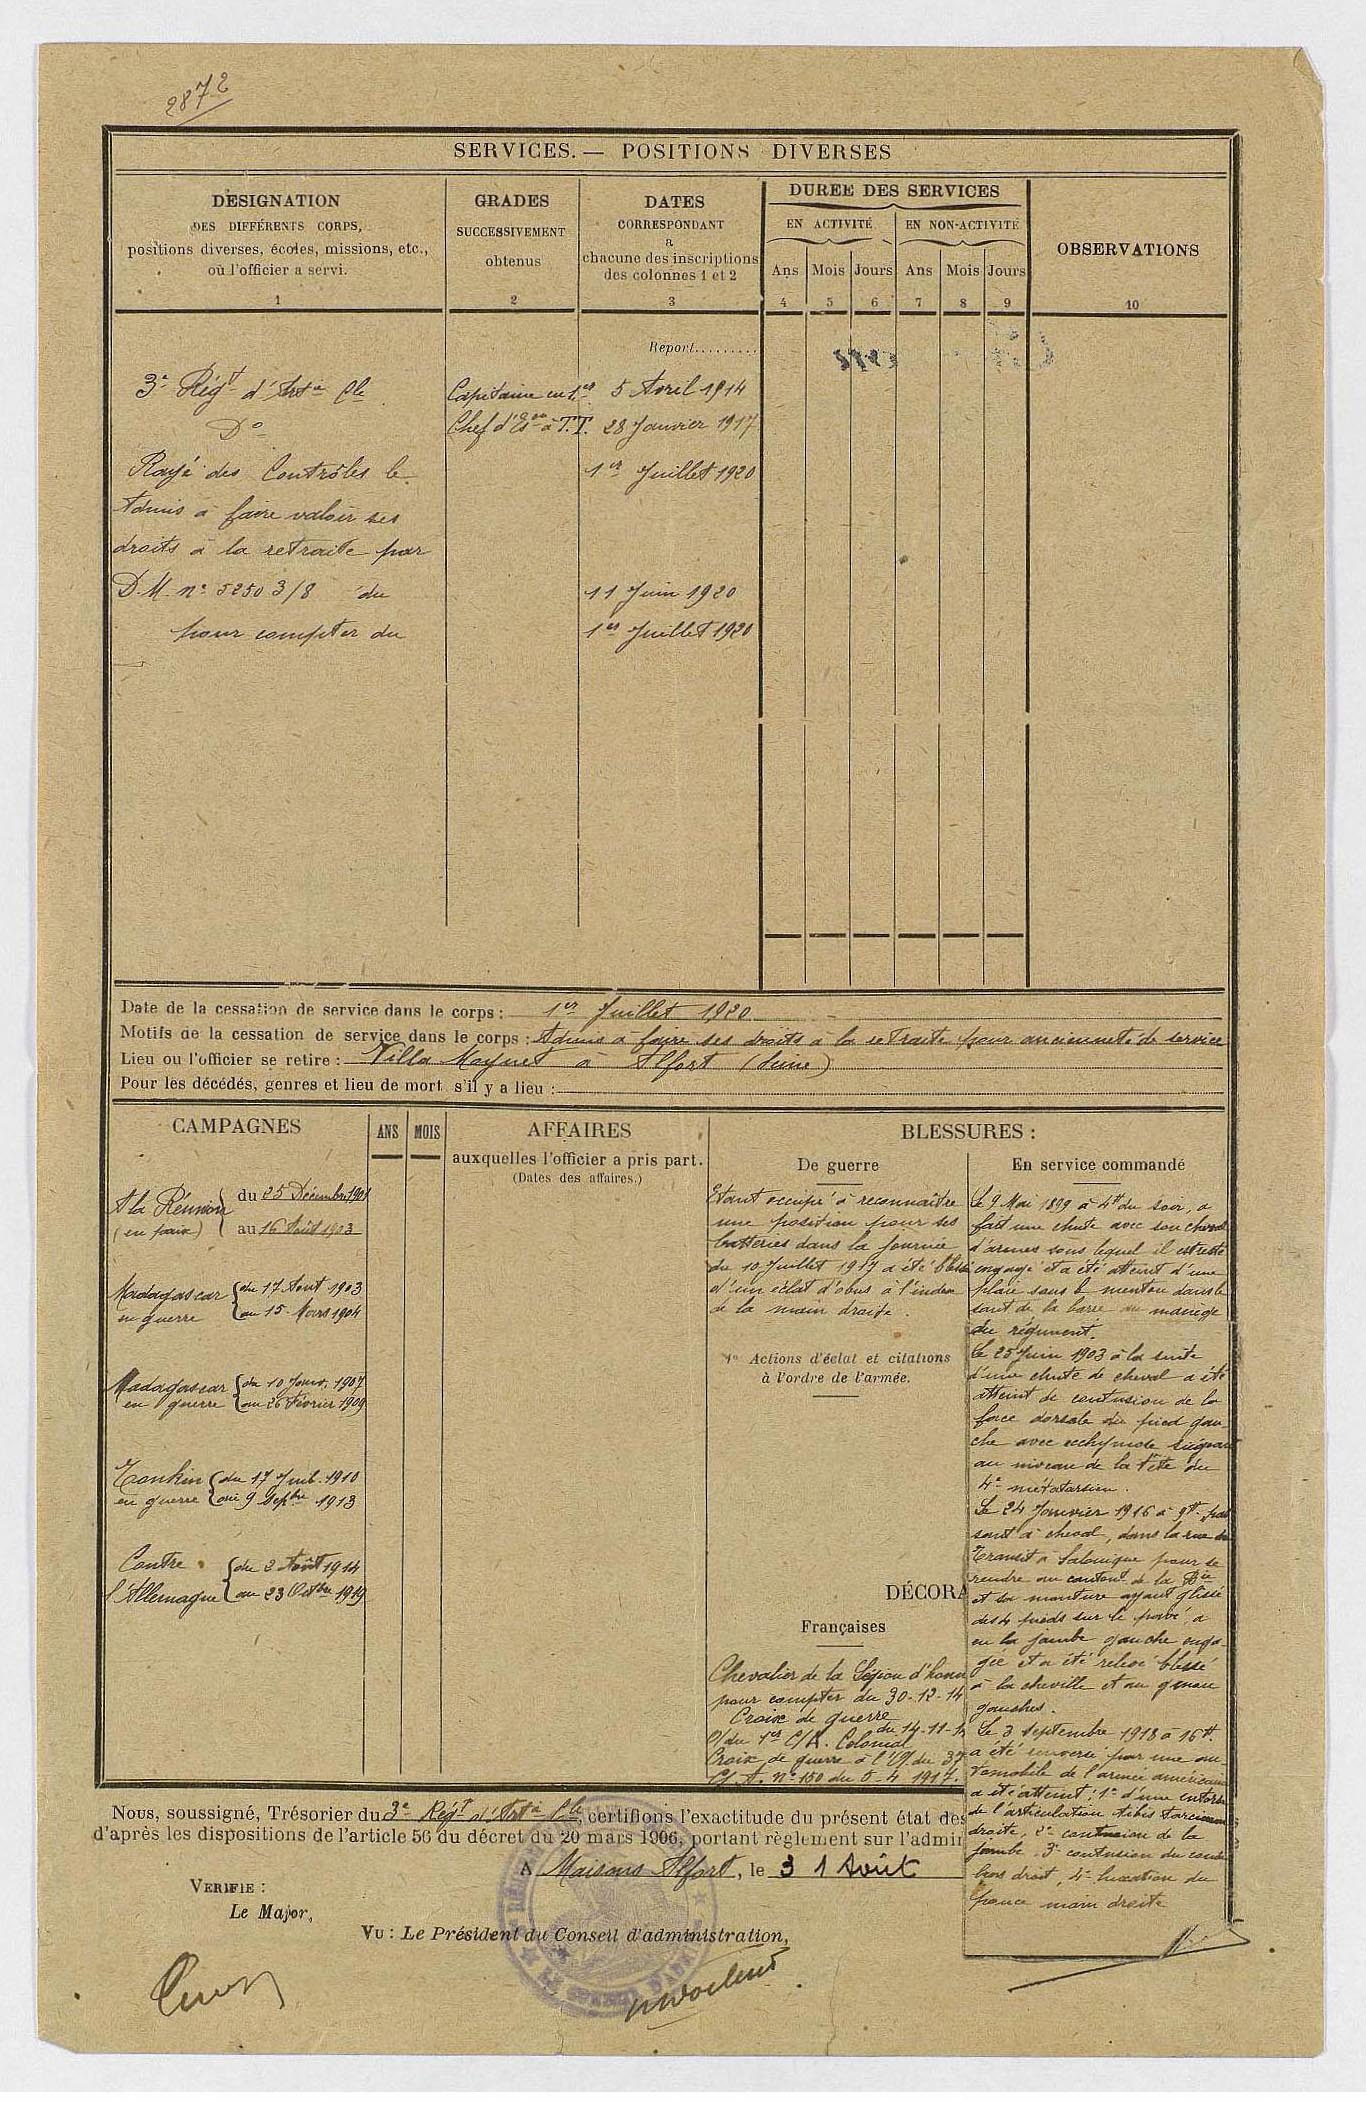 2872
SERVICES. — POSITIONS DIVERSES
DESIGNATION
DES DIFFÉRENTS CORPS,
positions diverses, écoles, missions, etc.,
où l'officier a servi.
1
GRADES
SUCCESSIVEMENT
obtenus
2
DATES
CORRESPONDANT
a
chacune des inscriptions
des colonnes 1 et 2
3
DUREE DES SERVICES
EN ACTIVITÉ EN NON-ACTIVITÉ
Ans Mois Jours Ans Mois Jours
4 5 6 7 8 9
OBSERVATIONS
10
Report.........
3e Régt d'Artie Cle Capitaine en 1er 5 Avril 1914
Do Chef d'Eon à T.T. 28 Janvier 1917
Rayé des Contrôles le 1er Juillet 1920
Admis à faire valoir ses
droits à la retraite par
D.M. no 5250 3/8 du 11 Juin 1920
pour compter du 1er Juillet 1920
Date de la cessation de service dans le corps : 1er Juillet 1920
Motifs de la cessation de service dans le corps : Admis à faire ses droits à la retraite pour ancienneté de service
Lieu ou l'officier se retire : Villa Moynet à Alfort (Seine)
Pour les décédés, genres et lieu de mort s'il y a lieu :
CAMPAGNES
ANS MOIS
A la Réunion du 25 Décembre 1901
(en paix) au 16 Août 1903
Madagascar du 17 Aout 1903
en guerre au 15 Mars 1904
Madagascar du 10 Janv. 1907
en guerre au 26 Février 1909
Tonkin du 17 Juil. 1910
en guerre au 9 Septbre 1913
Contre du 2 Août 1914
l'Allemagne au 23 Octbre 1919
AFFAIRES
auxquelles l'officier a pris part.
(Dates des affaires.)
BLESSURES :
De guerre
Etant occupé à reconnaître
une position pour ses
batteries dans la journée
du 10 Juillet 1917 a été blessé
d'un éclat d'obus à l'index
de la main droite.
1o Actions d'éclat et citations
à l'ordre de l'armée.
DÉCORA
Françaises
Chevalier de la Légion d'honn
pour compter du 30-12-14
Croix de guerre
O/ du 1er C/A. Colonial du 14-11-1
Croix de guerre à l'O/ du 37
C/A. no 150 du 5-4 1917.
En service commandé
Le 9 Mai 1899 à 4H du soir, a
fait une chute avec son cheval
d'armes sous lequel il est resté
engagé et a été atteint d'une
plaie sous le menton dans le
saut de la barre au manège
du régiment.
Le 25 Juin 1903 à la suite
d'une chute de cheval a été
atteint de contusion de la
face dorsale du pied gau-
che avec ecchymose siégeant
au niveau de la tête du
4e métatarsien.
Le 24 Janvier 1916 à 9H. pas
sant à cheval, dans la rue du
Transit à Salonique pour se
rendre au cantont de la Bie
et sa monture ayant glissé
des 4 pieds sur le pavé, a
eu la jambe gauche enga-
gée et a été relevé blessé
à la cheville et au genou
gauches.
Le 3 septembre 1918 à 16H.
a été renversé par une au
tomobile de l'armée américaine
a été atteint : 1o d'une entorse
de l'articulation tibio tarsienne
droite, 2o contusion de la
jambe 3o contusion du coude
bras droit, 4o luxation du
pouce main droite
Nous, soussigné, Trésorier du 3e Régt d'Artie Cle, certifions l'exactitude du présent état des
d'après les dispositions de l'article 56 du décret du 20 mars 1906, portant règlement sur l'admin
A Maisons Alfort, le 31 Août
VERIFIE :
Le Major,
Vu : Le Président du Conseil d'administration,